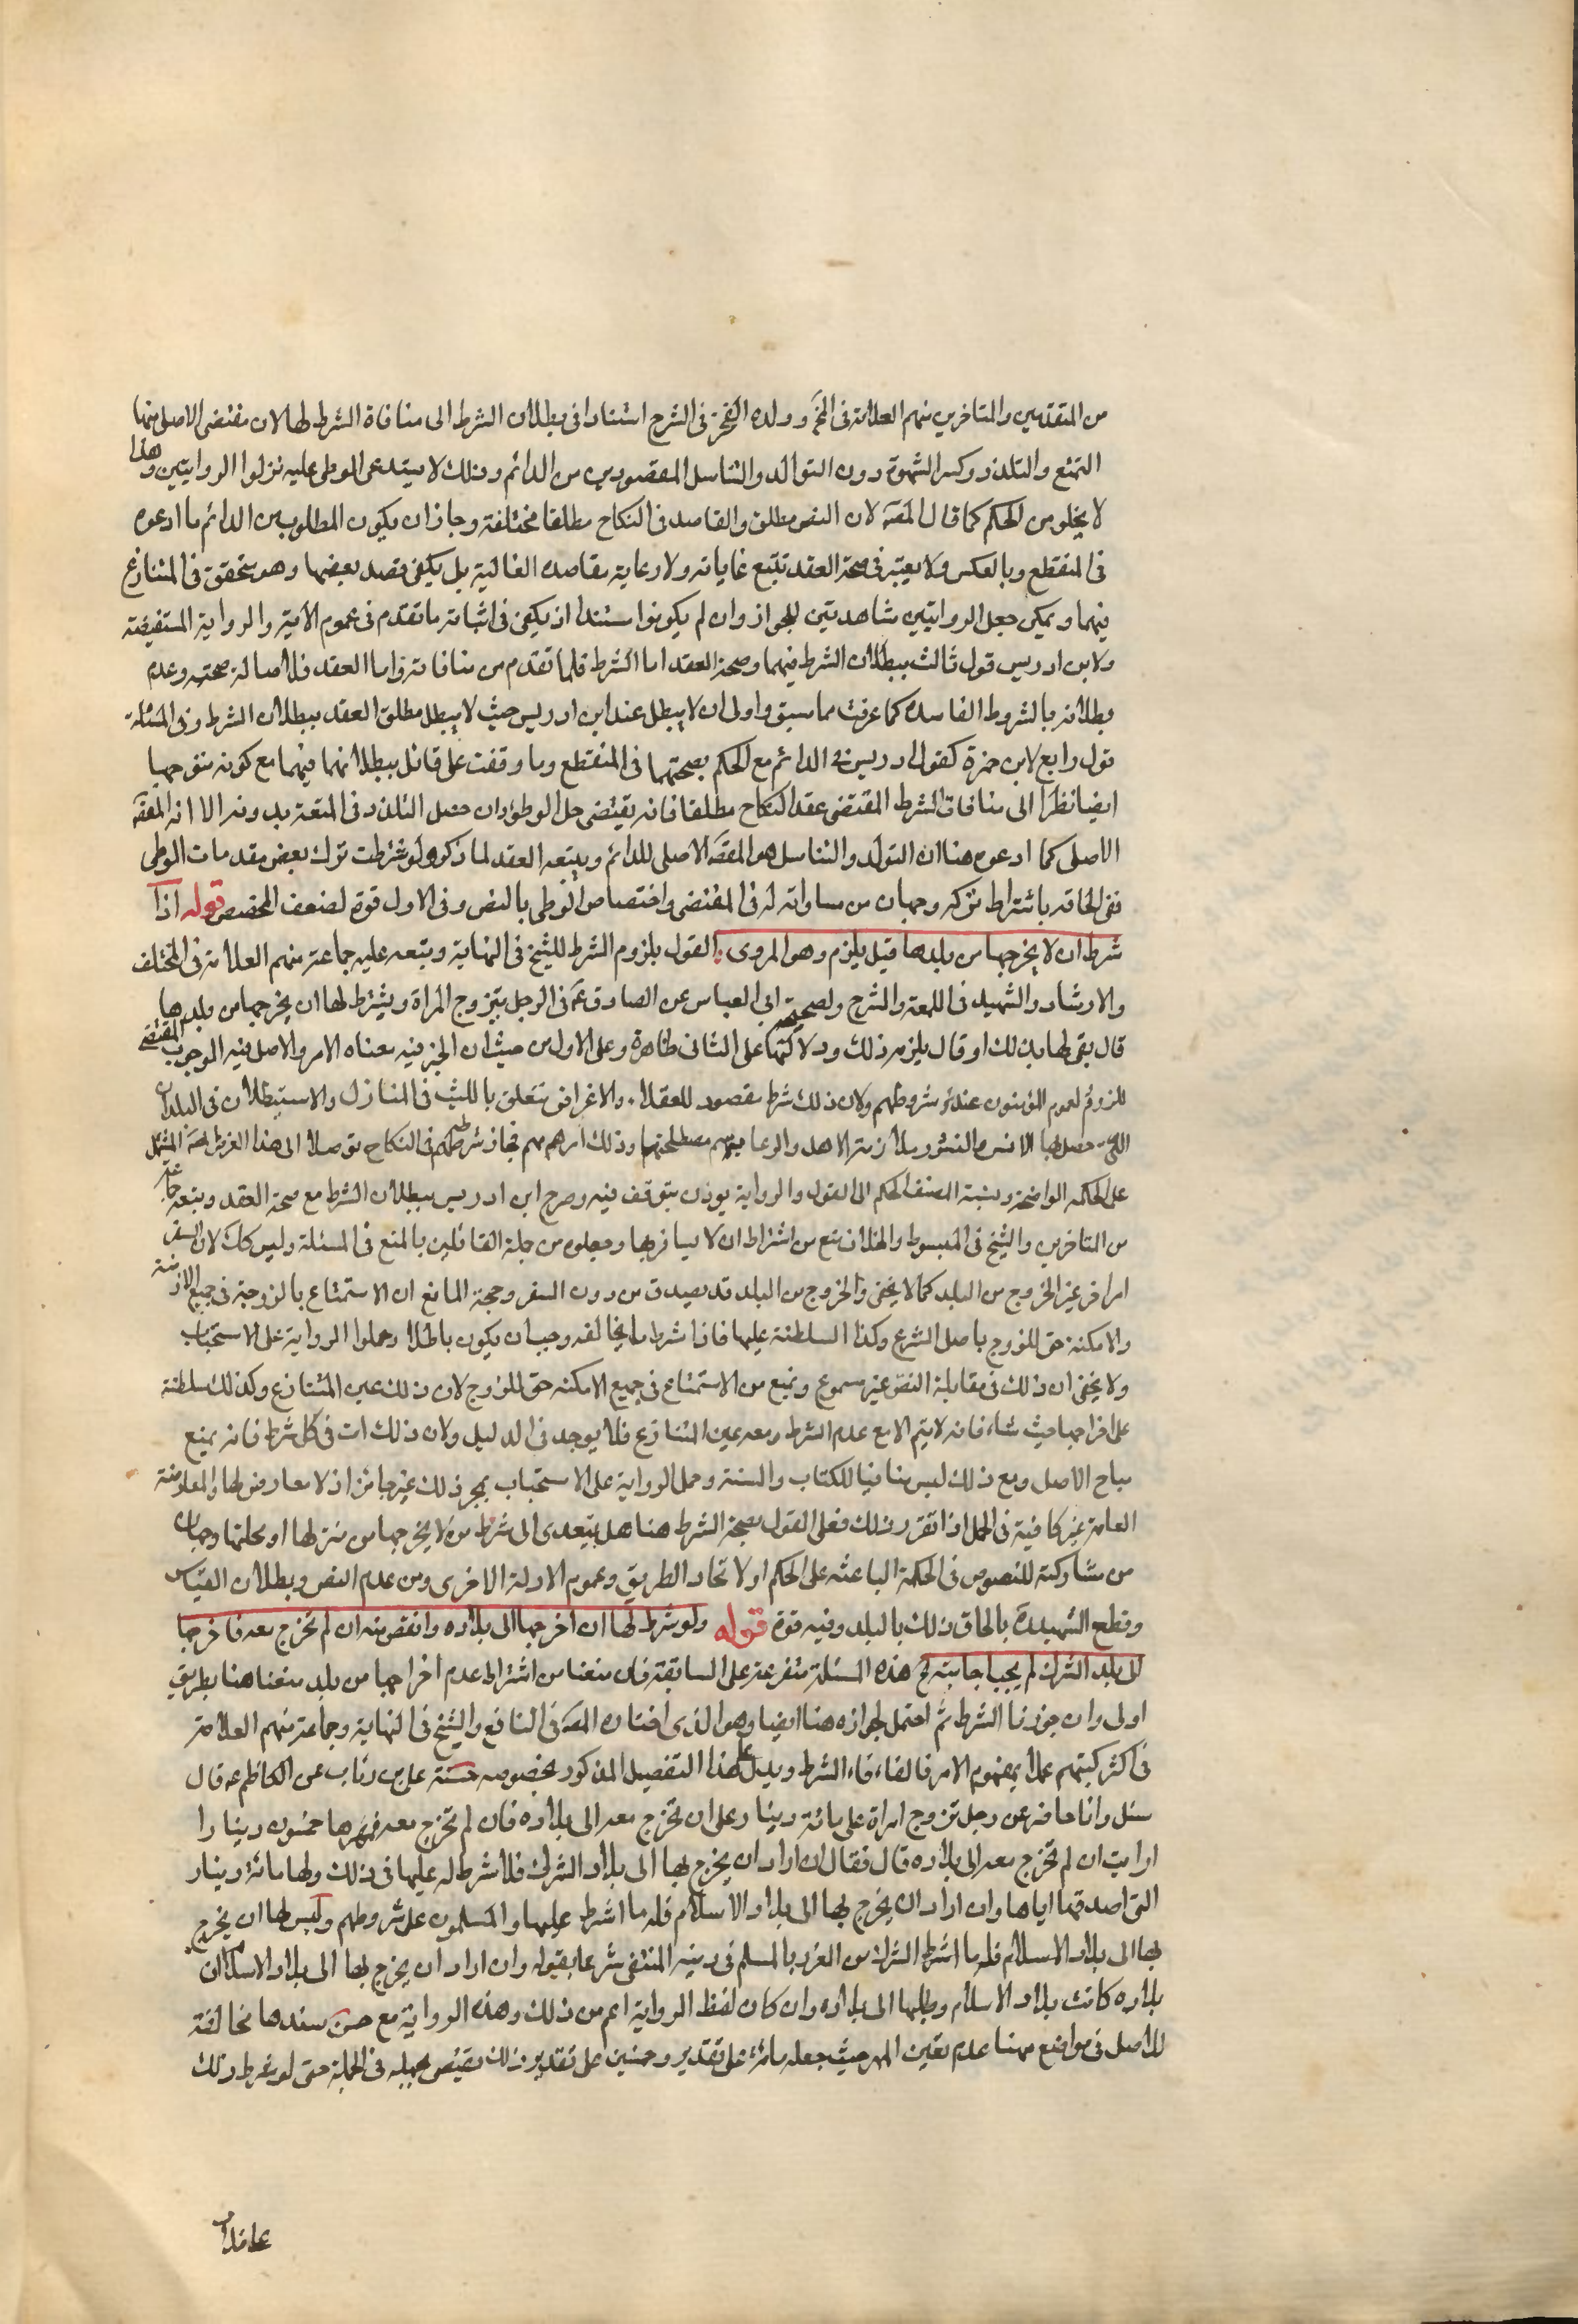 من المتقدمين والمتاخرين منهم العلامة فى المخ وولده الفخر فى الشرح استنادا فى بطلان الشرط الى منافاة الشرط لها لان مقتضى الاصلى منها
التمتع والتلذذ وكسر الشهوة دون التوالد والتناسل المقصودين من الدائم وذلك لا يستدعى الوطى عليه نزلوا الروايتين وهذا
لا يخلو من تحكم كما قال المصَ لان النص مطلق والقاصد فى النكاح مطلقا مختلفة وجاز ان يكون المطلوب من الدائم ما ادعوه
فى المنقطع وبالعكس ولا يعتبر فى صحة العقد تتبع غاياته ولا رعاية مقاصده الغالبة بل يكفى قصد بعضها وهو متحقق فى المتنازع
فيهما ويمكن جعل الروايتين شاهدتين للجواز وان لم يكونوا مستندا اذ يكفى فى اثباته ما تقدم فى عموم الآية والرواية المستفيضة
ولابن ادريس قول ثالث ببطلان الشرط فيهما وصحة العقد اما الشرط فلما تقدم من منافاته واما العقد فلاصالة صحته وعدم
بطلانه بالشروط الفاسده كما عرفت مما سبق واولى ان لا يبطل عند ابن ادريس حيث لا يبطل مطلق العقد ببطلان الشرط وفى المسئلة
قول رابع لابن حمزة كقول ادريس فى الدائم مع الحكم بصحتهما فى المنقطع وما وقفت على قائل ببطلانهما فيهما مع كونه متوجها
ايضا نظرا الى منافات الشرط المقتضى عقد النكاح مطلقا فانه يقتضى حل الوطؤ وان حصل التلذذ فى المتعة بدونه الا انه المقصَ
الاصلى كما ادعوه هنا ان التوالد والتناسل هو المقصَ الاصلى للدائم ويتبعه العقد لما ذكر ولو شرطت ترك بعض مقدمات الوطى
ففى الحاقه باشتراط تركه وجهان من مساواته له فى المقتضى واختصاص الوطى بالنص وفى الاول قوة لضعف المخصص قوله اذا
شرط ان لا يخرجها من بلدها قيل يلزم وهو المروى القول بلزوم الشرط للشيخ فى النهاية وتبعه عليه جماعة منهم العلامة فى المختلف
والارشاد والشهيد فى اللمعة والشرح ولصحيحة ابى العباس عن الصادق عَم فى الرجل يتزوج المراة ويشترط لها ان يخرجها من بلدها
قال يفى لها بذلك او قال يلزمه ذلك ودلالتها على الثانى ظاهرة وعلى الاول من حيث ان الخبر فيه معناه الامر والاصل فيه الوجوب المقتضى
للزوم لعموم المؤمنون عند شروطهم ولان ذلك شرط مقصود للعقلا والاغراض تتعلق باللبث فى المنازل والاستيطان فى البلدان
التى حصل بها الانس والنشور وملازمة الاهل والرعاية مصلحتها وذلك امر مهم فجاز شرطه فى النكاح توصلا الى هذا الغرض المشتمل
على الحكمه الواضحة ونسبة المصنف الحكم الى القول والرواية يوذن بتوقف فيه وصرح ابن ادريس ببطلان الشرط مع صحة العقد وتبعه جماعة
من المتاخرين والشيخ فى المبسوط والخلاف منع من اشتراط ان لا يسافر بها وجعلوه من جملة القائلين بالمنع فى المسئلة وليس كك لان السفر
امر اخر غير الخروج من البلد كما لا يخفى والخروج من البلد قد يصدق من دون السفر وحجة المانع ان الاستمتاع بالزوجة فى جميع الازمنة
والامكنة حق للزوج باصل الشرع وكذا السلطنة عليها فاذا شرط ما يخالفه وجب ان يكون باطلا وحملوا الرواية على الاستحباب
ولا يخفى ان ذلك فى مقابلة النص غير مسموع ونمنع من الاستمتاع فى جميع الامكنه حق للزوج لان ذلك عين المتنازع وكذلك سلطنة
على اخراجها حيث شاء فانه لا يتم الا مع عدم الشرط ومعه عين المتنازع فلا يوجد فى الدليل ولان ذلك ات فى كل شرط فانه يمنع
مباح الاصل ومع ذلك ليس منافيا للكتاب والسنة وحمل الرواية على الاستحباب بمجرد ذلك غير جائز اذ لا معارض لها والمعارضة
العامة غير كافية فى الحمل اذا تقرر ذلك فعلى القول بصحة الشرط هنا هل يتعدى الى شرط من لا يخرجها من منزلها او محلتها وجهان
من مشاركته للنصوص فى الحكمة الباعثه على الحكم او لاتحاد الطريق وعموم الادلة الاخرى ومن عدم النص وبطلان القياس
وقطع الشهيد بالحاق ذلك بالبلد وفيه قوة قوله ولو شرط لها ان اخرجها الى بلاده وانقص منه ان لم تخرج معه فاخرجها
الى بلد الشرك لم يجب اجابته الخ هذه المسئلة متفرعة على السابقة فان منعنا من اشتراط عدم اخراجها من بلد منعنا هنا بطريق
اولى وان جوزنا الشرط ثم احتمل الجوازه هنا ايضا وهو الذى اختاره المصَ فى النافع والشيخ فى النهاية وجماعة منهم العلامة
فى اكثر كتبهم عملا بمفهوم الامر فالغاء الشرط ويدل على هذا التفصيل المذكور بخصوصه حسنة على بن رئاب عن الكاظم عَه قال
سئل وانا حاضر عن رجل تزوج امراة على مائة دينار على ان تخرج معه الى بلاده فان لم تخرج معه فمهرها خمسون دينارا
ارايت ان لم تخرج معه الى بلاده قال فقال ان اراد ان يخرج بها الى بلاد الشرك فلا شرط له عليها فى ذلك ولها مائة دينار
التى اصدقها اياها وان اراد ان يخرج بها الى بلاد الاسلام فله ما اشترط عليها والمسلمون على شروطهم وليس لها ان يخرج
بها الى بلاد الاسلام فله ما اشترط الشرك من الغرر بالمسلم فى دينه المنتفى شرعا بقوله وان اراد ان يخرج بها الى بلاد الاسلام ان
بلاده كانت بلاد الاسلام وطلبها الى بلاده وان كان لفظ الرواية اعم من ذلك وهذه الرواية مع حسن سندها مخالفة
للاصل فى مواضع منها عدم تعين المهر حيث جعله مائة على تقدير وخمسين على تقدير ذلك يقتضى جهله فى الجملة حتى لو شرط ذلك